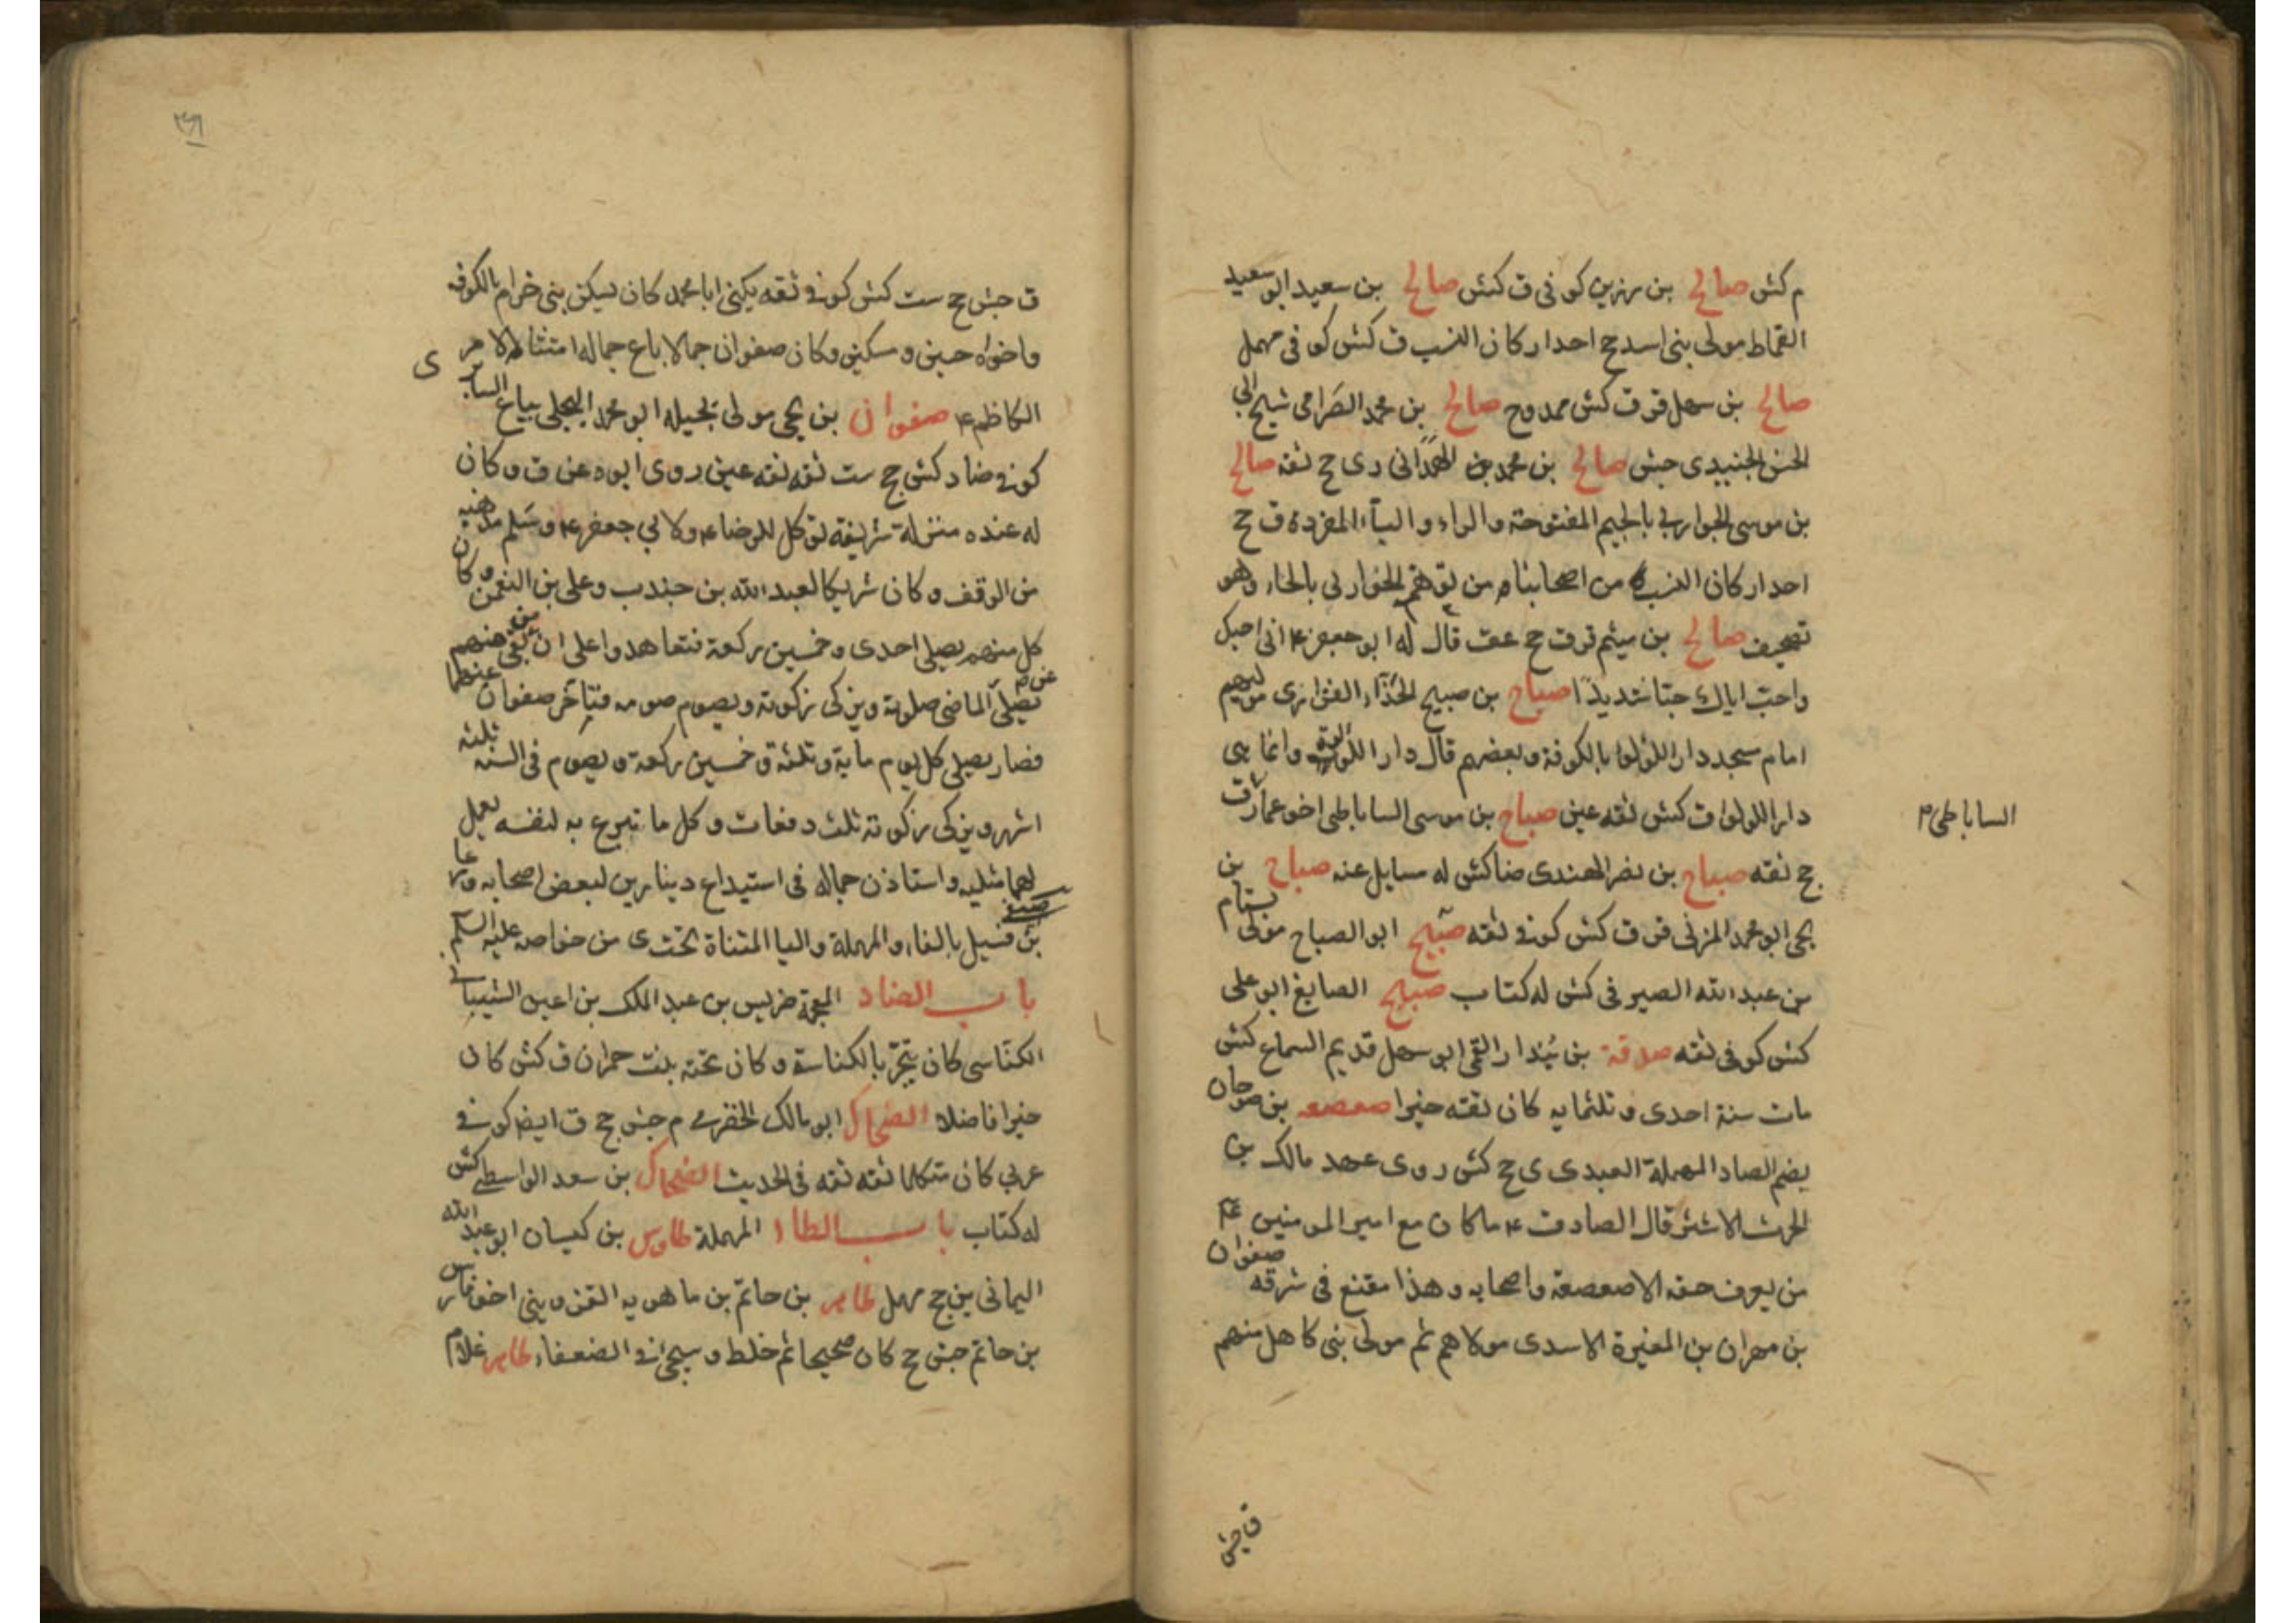 م كش صالح بن رزين كوفى ق كش صالح بن سعيد ابو سعيد
القماط مولى بنى اسد ج احدار كان النسب ق كش كوفى مهمل
صالح بن سهل قر ق كش ممدوح صالح بن محمد الصرامى شيخ ابى
الحسن الجنيدى جش صالح بن محمد الهمدانى دى ج ثقه صالح
بن موسى الجواربى بالجيم المفتوحة والراء والباء المفردة ق ج
احدار كان النسب من اصحابنا من توهم الخواربى بالخاء وهو
تصحيف صالح بن ميثم قر ق ج عق قال له ابو جعفر ۴ انى احبك
واحب اباك حبا شديدا صباح بن صبيح الحذاء الفزارى مولاهم
امام مسجد دار اللؤلؤ بالكوفة وبعضهم قال دار اللؤلؤة وانما هى
دار اللولوا ق كش ثقه عين صباح بن موسى الساباطى اخو عمار ق
الساباطى م
ج ثقه صباح بن نضر الهندى ضا كش له مسايل عنه صباح بن
يحى ابو محمد المزنى قر ق كش كوفى ثقه صبيح ابو الصباح مولى بسام
بن عبد الله الصيرفى كش له كتاب صبيح الصايغ ابو على
كش كوفى ثقه صدقة بن بندار القمى ابو سهل قديم السماع كش
مات سنة احدى وثلثمايه كان ثقته خيرا صعصعه بن صوحان
بضم الصاد المهملة العبدى ى ج كش روى عهد مالك بن
الحرث الاشتر قال الصادق ۴ ما كان مع امير المومنين ع
من يعرف حقه الا صعصعة واصحابه وهذا مقنع فى شرفه صفوان
بن مهران بن المغيرة الاسدى مولاهم ثم مولى بنى كاهل منهم
ق جش
ق جش ج ست كش كوفى ثقه يكنى ابا محمد كان يسكن بنى خرام بالكوفه
واخواه حسين و سكين وكان صفوان جمالا باع جماله امتثالا لامر
الكاظم ۴ صفوان بن يحى مولى بجيله ابو محمد البجلى بياع السابرى
كوفى ضا د كش ج ست ثقه ثقه عين روى ابوه عن ق وكان
له عنده منزلة شريفه توكل للرضا ۴ ولابي جعفر ۴ وسلم مذهبه
من الوقف وكان شريكا لعبد الله بن جندب وعلى بن النعمن وكان
كل منهم يصلى احدى وخمسين ركعة فتعاهدوا على ان من بقى منهم
يصلى عن الماضى صلوته ويزكى زكوته ويصوم صومه فتأخر صفوان عنهما
فصار يصلى كل يوم ماية وثلثة وخمسين ركعة ويصوم فى السنه ثلثه
اشهر ويزكى زكوته ثلث دفعات وكل ما تبرع به لنفسه يعمل
لهما مثليه واستاذن جماله فى استيداع دينارين لبعض اصحابه
بن فسيل بالفاء والمهملة واليا المثناة تحت ى من خواصه عليه السلم
باب الضاد المعجمة ضريس بن عبد الملك بن اعين الشيبانى
الكناسى كان يتجر بالكناسة وكان تحته بنت حمران ق كش كان
خيرا فاضلا الضحاك ابو مالك الحضرمى م جش ج ق ايضا كوفى
عربى كان متكلما ثقه ثقه فى الحديث الضحاك بن سعد الواسطى كش
له كتاب باب الطاء المهملة طاوس بن كيسان ابو عبد الله
اليمانى ين ج مهمل طاهر بن حاتم بن ماهويه القزوينى اخو فارس
بن حاتم جش ج كان صحيحا ثم خلط وسيجى فى الضعفاء طاهر غلام